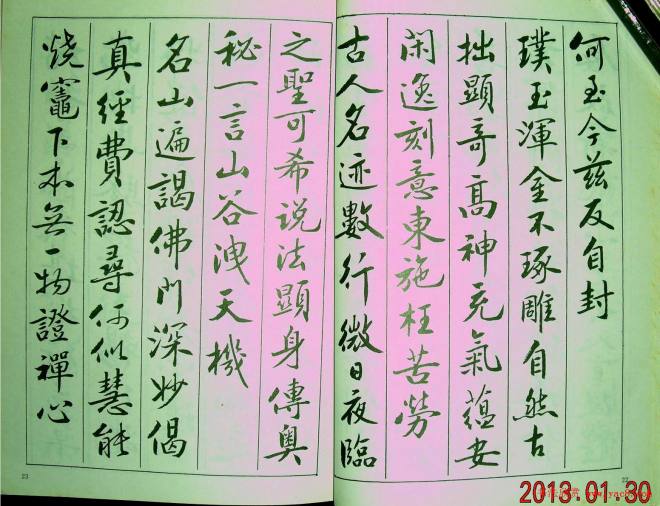 何至今兹反自封
璞玉渾金不琢雕自然古
拙顯奇高神充氣蕴安
閑逸刻意東施枉苦勞
古人名迹數行微日夜臨
之聖可希说法顯身傳奥
秘一言山谷洩天機
名山遍謁佛門深妙偈
真經費認尋何似慧能
烧竈下本無一物證禪心
23
22
2013.01.30